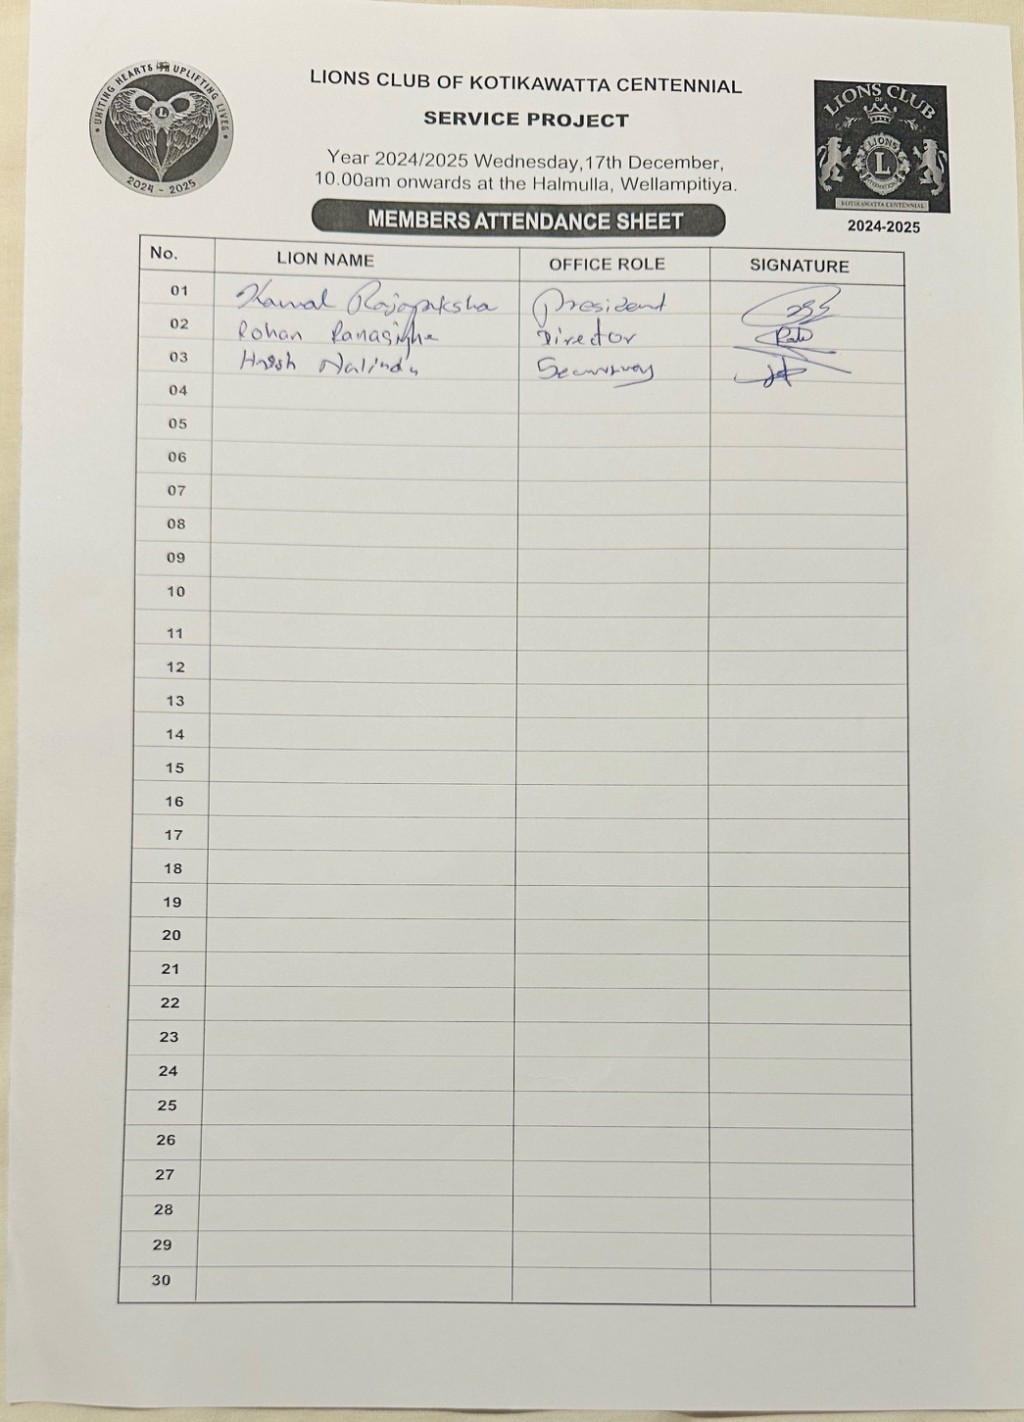 UNITING HEARTS UPLIFTING LIVES
2024 - 2025
LIONS CLUB OF KOTIKAWATTA CENTENNIAL
SERVICE PROJECT
Year 2024/2025 Wednesday,17th December,
10.00am onwards at the Halmulla, Wellampitiya.
LIONS CLUB
OF
LIONS
L
INTERNATIONAL
KOTIKAWATTA CENTENNIAL
2024-2025
MEMBERS ATTENDANCE SHEET
No. LION NAME OFFICE ROLE SIGNATURE
01 Kamal Rajapaksha President
02 Rohan Ranasighe Director
03 Nalindu
04
05
06
07
08
09
10
11
12
13
14
15
16
17
18
19
20
21
22
23
24
25
26
27
28
29
30